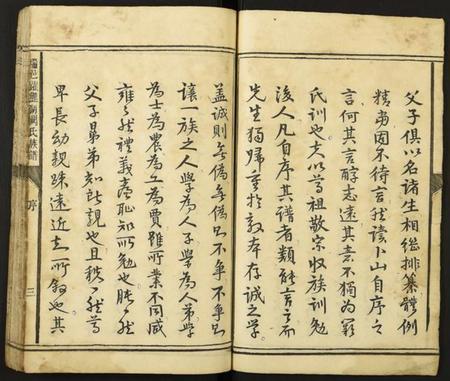 父子俱以名諸生相繼排纂體例
精當固不待言我讀卜山自序之
言何其言醇志遠其素不獨為羅
氏訓也夫以尊祖敬宗收族訓勉
後人凡自序其譜者類能言之而
先生獨歸重於敦本存誠之學
蓋誠則無偽無偽只不爭不爭只
讓一族之人學為人子學為人弟學
為士為農為工為賈雖所業不同咸
雍雍然禮義廉恥知所勉也肫肫然
父子昆弟知所親也且秩秩然尊
卑長幼親疎遠近知所敘也其
氏族譜
序
三